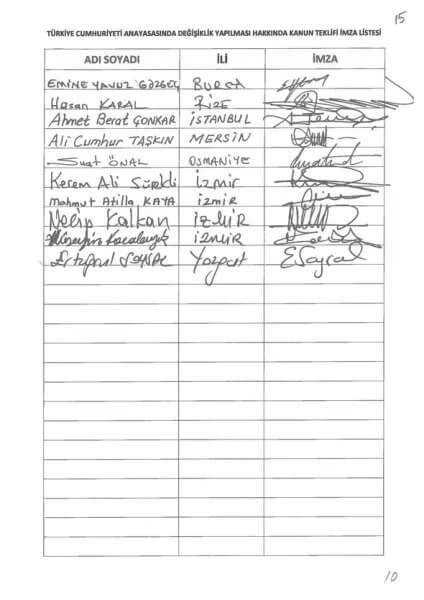 15
TÜRKİYE CUMHURİYETİ ANAYASASINDA DEĞİŞİKLİK YAPILMASI HAKKINDA KANUN TEKLİFİ İMZA LİSTESİ
ADI SOYADI İLİ İMZA
EMİNE YAVUZ GÖZGEÇ Bursa
Hasan KARAL RİZE
Ahmet Berat ÇONKAR İSTANBUL
Ali Cumhur TAŞKIN MERSİN
Suat ÖNAL OSMANİYE
Kerem Ali Sürekli İzmir
Mahmut Atilla KAYA İZMİR
Necip Kalkan İZMİR
Hüseyin Kocabıyık İZMİR
Ertuğrul SOYSAL Yozgat ESoysal
10